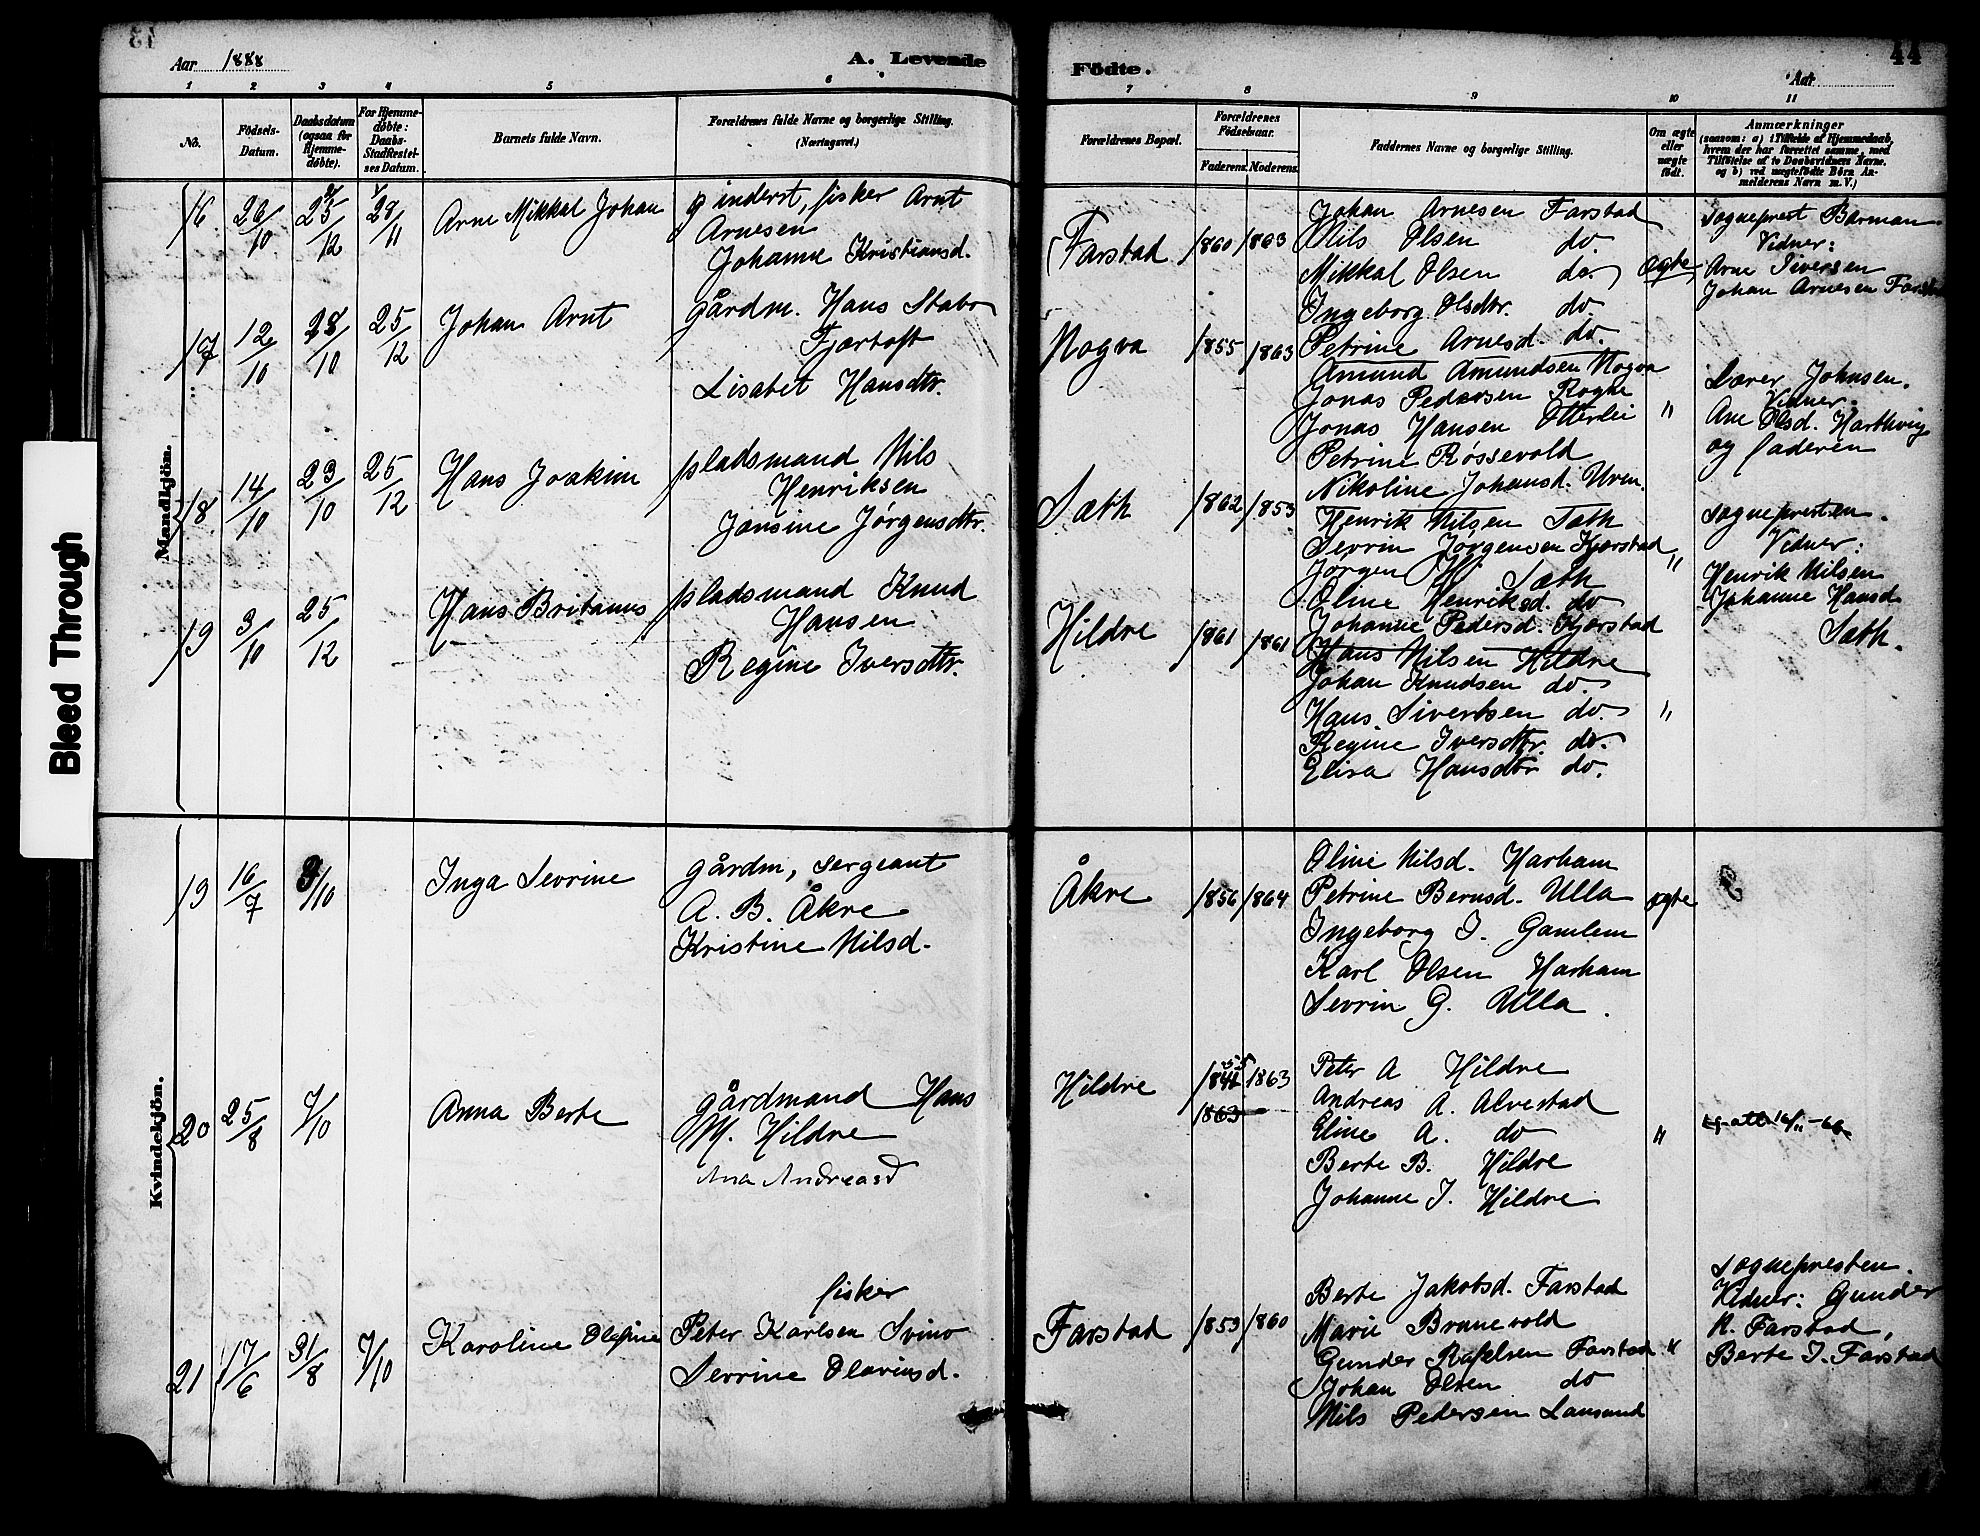 Aar 1888
A. Levende Födte.
44
Aar
1 2 3 4 5 6 7 8 9 10 11
No.
Födsels-Datum.
Daabsdatum (ogsaa for Hjemme-døbte).
For Hjemme-døbte: Daabs-Stadfæstel-ses Datum.
Barnets fulde Navn.
Forældrenes fulde Navne og borgerlige Stilling. (Næringsvei.)
Forældrenes Bopæl.
Forældrenes Födselsaar.
Faderens. Moderens.
Faddernes Navne og borgerlige Stilling.
Om ægte eller uægte födt.
Anmærkninger
(saasom: a) i Tilfælde af Hjemmedaab, hvem der har forrettet samme, med Tilföielse af to Daabsvidners Navne. og b) ved uægtefödte Börn An-melderens Navn m. V.)
Bleed Through
Mandkjön.
16 26/10 25/12 28/11 Arne Mikkal Johan
inderst, fisker Arnt
Arnesen
Johanne Kristiansd.
Farstad 1860 1863
Johan Arnesen Farstad
Nils Olsen do
Mikkal Olsen do
Ingeborg Olsdtr. do.
Petrine Arnesd. do.
ægte
sogneprest Barman
Vidner:
Arne Siversen
Johan Arnesen Farstad
17 12/10 28/10 25/12 Johan Arnt
gårdm. Hans Stabo
Fjærtoft
Lisabet Hansdtr.
Nogva 1855 1863
Amund Amundsen Nogva
Jonas Pedersen Rogne
Jonas Hansen Otterlei
Petrine Røssevold
Nikoline Johansd. Uren.
"
Lærer Johnsen.
Vidner:
Ane Olsd. Harthvig
og faderen
18 14/10 23/10 25/12 Hans Joakim
pladsmand Nils
Henriksen
Jansine Jørgensdtr.
Sæth 1862 1853
Henrik Nilsen Sæth
Sevrin Jørgensen Kjærstad
Jørgen Sæth
Oline Henriksd. do
Johanne Pedersd. Kjærstad
"
sognepresten.
Vidner:
Henrik Nilsen
Johanne Hansd.
Sæth.
19 3/10 25/12 Hans Britanus
pladsmand Knud
Hansen
Regine Iversdtr.
Hildre 1861 1861
Hans Nilsen Hildre
Johan Knudsen do.
Hans Sivertsen do.
Regine Iversdtr. do.
Elisa Hansdtr do.
"
Kvindekjön.
19 16/7 9/10 Inga Sevrine
gårdm, sergeant
A. B. Åkre
Kristine Nilsd.
Åkre 1856 1864
Oline Nilsd. Harham
Petrine Bernsd. Ulla
Ingeborg I. Gamlem
Karl Olsen Harham
Sevrin G. Ulla.
ægte
20 25/8 7/10 Anna Berte
gårdmand Hans
M. Hildre
Ana Andreasd
Hildre 1863
1863
Peter A Hildre
Andreas A. Alvestad
Eline A. do
Berte B. Hildre
Johanne I. Hildre
"
21 17/6 31/8 7/10 Karoline Olefine
fisker
Peter Karlsen Svino
Serrine Olaviusd.
Farstad 1853 1860
Berte Jakobsd. Farstad
Marie Brunevold
Gunder Rafelsen Farstad
Johan Olsen do
Nils Pedersen Lausund
"
sognepresten.
Vidner: Gunder
R. Farstad,
Berte J. Farstad